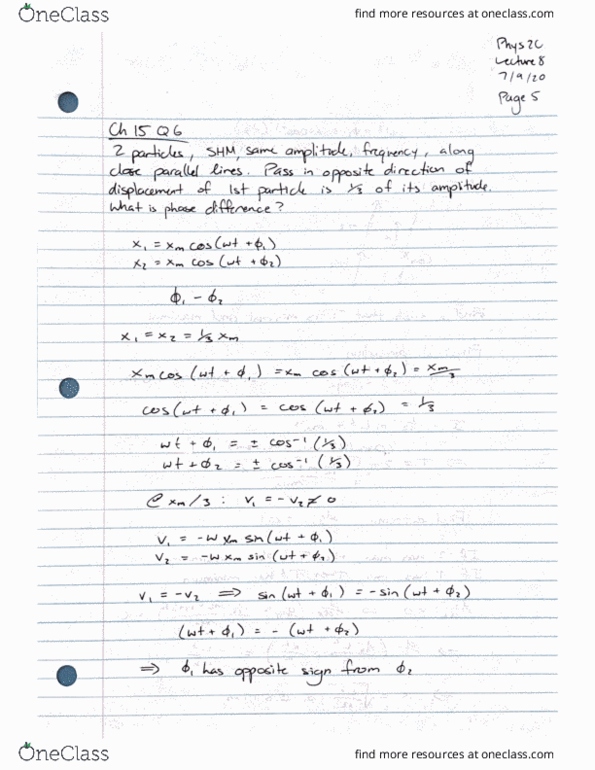 OneClass
find more resources at oneclass.com
Phys 2C
Lecture 8
7/9/20
Page 5
Ch 15 Q6
2 particles, SHM, same amplitude, frequency, along
close parallel lines. Pass in opposite direction of
displacement of 1st particle is 1/3 of its amplitude.
What is phase difference?
x₁ = xm cos(ωt + ϕ₁)
x₂ = xm cos(ωt + ϕ₂)
ϕ₁ - ϕ₂
x₁ = x₂ = 1/3 xm
xm cos (ωt + ϕ₁) = xm cos (ωt + ϕ₂) = xm/3
cos(ωt + ϕ₁) = cos (ωt + ϕ₂) = 1/3
ωt + ϕ₁ = ± cos⁻¹ (1/3)
ωt + ϕ₂ = ± cos⁻¹ (1/3)
@ xm/3 : v₁ = -v₂ ≠ 0
v₁ = -ω xm sin(ωt + ϕ₁)
v₂ = -ω xm sin (ωt + ϕ₂)
v₁ = -v₂ ⟹ sin (ωt + ϕ₁) = -sin (ωt + ϕ₂)
(ωt + ϕ₁) = - (ωt + ϕ₂)
⟹ ϕ₁ has opposite sign from ϕ₂
OneClass
find more resources at oneclass.com